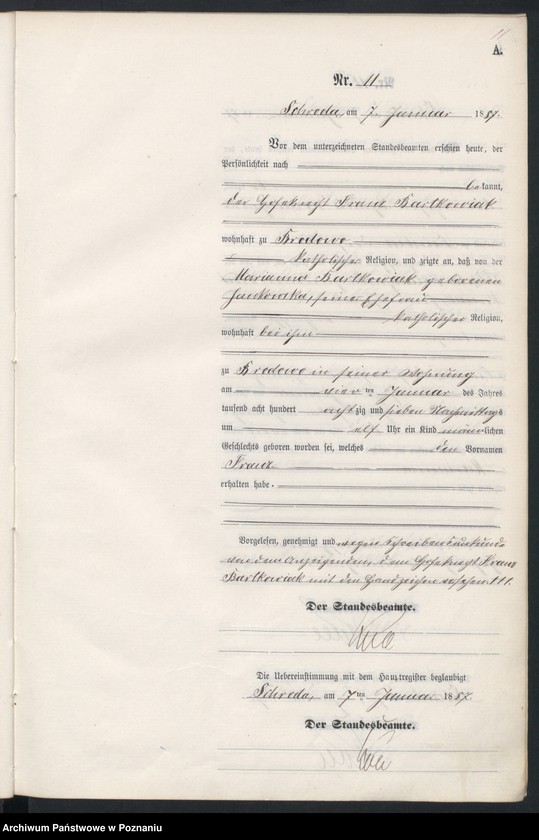 11
A.
Nr. 11
Schroda, am 7. Januar 1887.
Vor dem unterzeichneten Standesbeamten erschien heute, der
Persönlichkeit nach
bekannt,
der Hofeknecht Franz Bartkowiak
wohnhaft zu Brodowo
katholischer Religion, und zeigte an, daß von der
Marianna Bartkowiak geborenen
Jankowska, seiner Ehefrau
katholischer Religion,
wohnhaft bei ihm
zu Brodowo in seiner Wohnung
am vier ten Januar des Jahres
tausend acht hundert achtzig und sieben Nachmittags
um elf Uhr ein Kind männlichen
Geschlechts geboren worden sei, welches den Vornamen
Franz
erhalten habe.
Vorgelesen, genehmigt und wegen Schreibensunkunde
von dem Anzeigenden, dem Hofeknecht Franz
Bartkowiak mit den Handzeichen versehen †††.
Der Standesbeamte.
Die Uebereinstimmung mit dem Hauptregister beglaubigt
Schroda, am 7ten Januar 1887.
Der Standesbeamte.
Archiwum Państwowe w Poznaniu